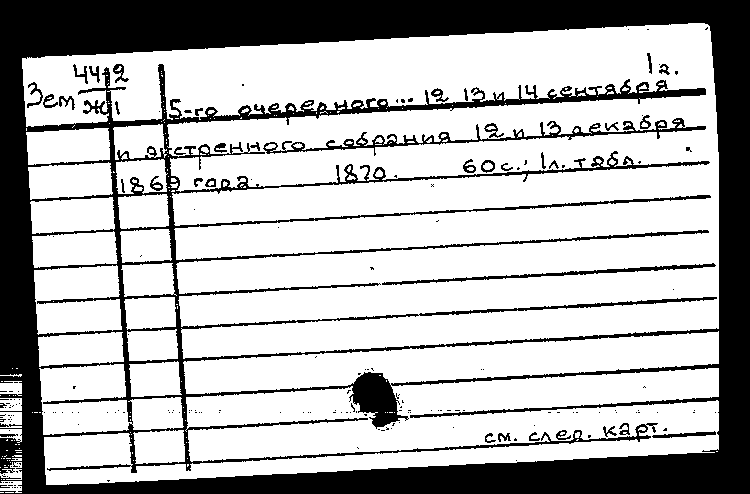 1 г.
Зем 44/2
Ж1
5-го очередного... 12, 13 и 14 сентября
и экстренного собрания 12 и 13 декабря
1869 года. 1870. 60 с.; 1 л. табл.
см. след. карт.